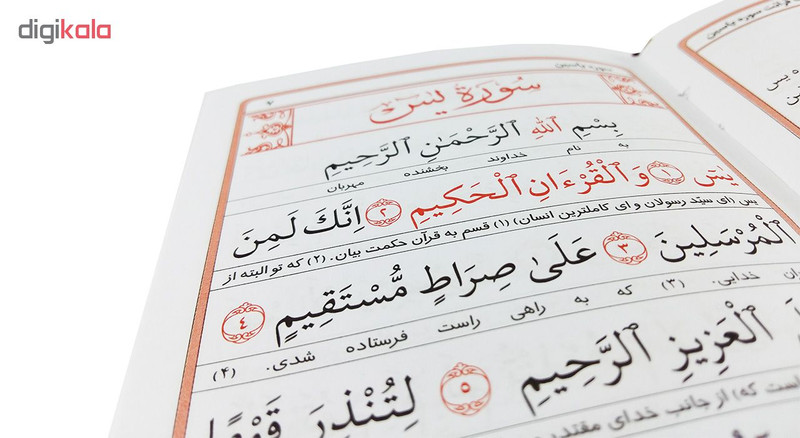 digikala
سوره یاسین
۲
سُورَةُ يس
بِسْمِ ٱللَّهِ ٱلرَّحْمَٰنِ ٱلرَّحِيمِ
به نام خداوند بخشنده مهربان
يسٓ ١ وَٱلْقُرْءَانِ ٱلْحَكِيمِ ٢ إِنَّكَ لَمِنَ
یس (ای سیّد رسولان و ای کاملترین انسان) (۱) قسم به قرآن حکمت بیان. (۲) که تو البته از
ٱلْمُرْسَلِينَ ٣ عَلَىٰ صِرَاطٍ مُّسْتَقِيمٍ ٤
خدایی. (۳) که به راهی راست فرستاده شدی. (۴)
ٱلْعَزِيزِ ٱلرَّحِيمِ ٥ لِتُنْذِرَ قَوْمًا
است که) از جانب خدای مقتدر